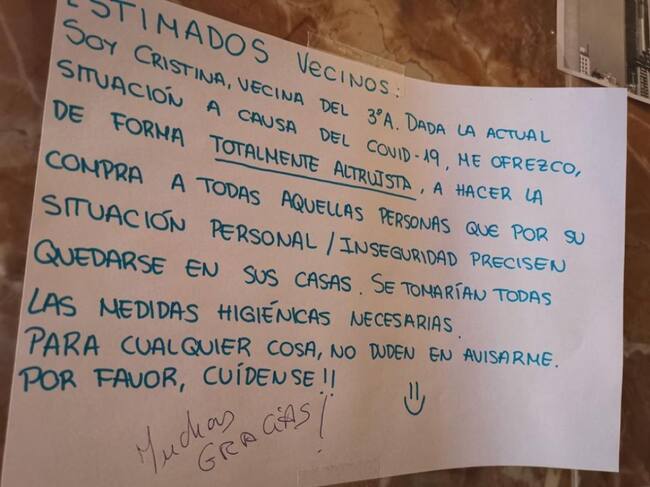 ESTIMADOS VECINOS:
SOY CRISTINA, VECINA DEL 3ºA. DADA LA ACTUAL
SITUACIÓN A CAUSA DEL COVID-19, ME OFREZCO,
DE FORMA TOTALMENTE ALTRUISTA, A HACER LA
COMPRA A TODAS AQUELLAS PERSONAS QUE POR SU
SITUACIÓN PERSONAL/INSEGURIDAD PRECISEN
QUEDARSE EN SUS CASAS. SE TOMARÍAN TODAS
LAS MEDIDAS HIGIÉNICAS NECESARIAS.
PARA CUALQUIER COSA, NO DUDEN EN AVISARME.
POR FAVOR, CUÍDENSE!! =)
Muchas
GRACIAS!